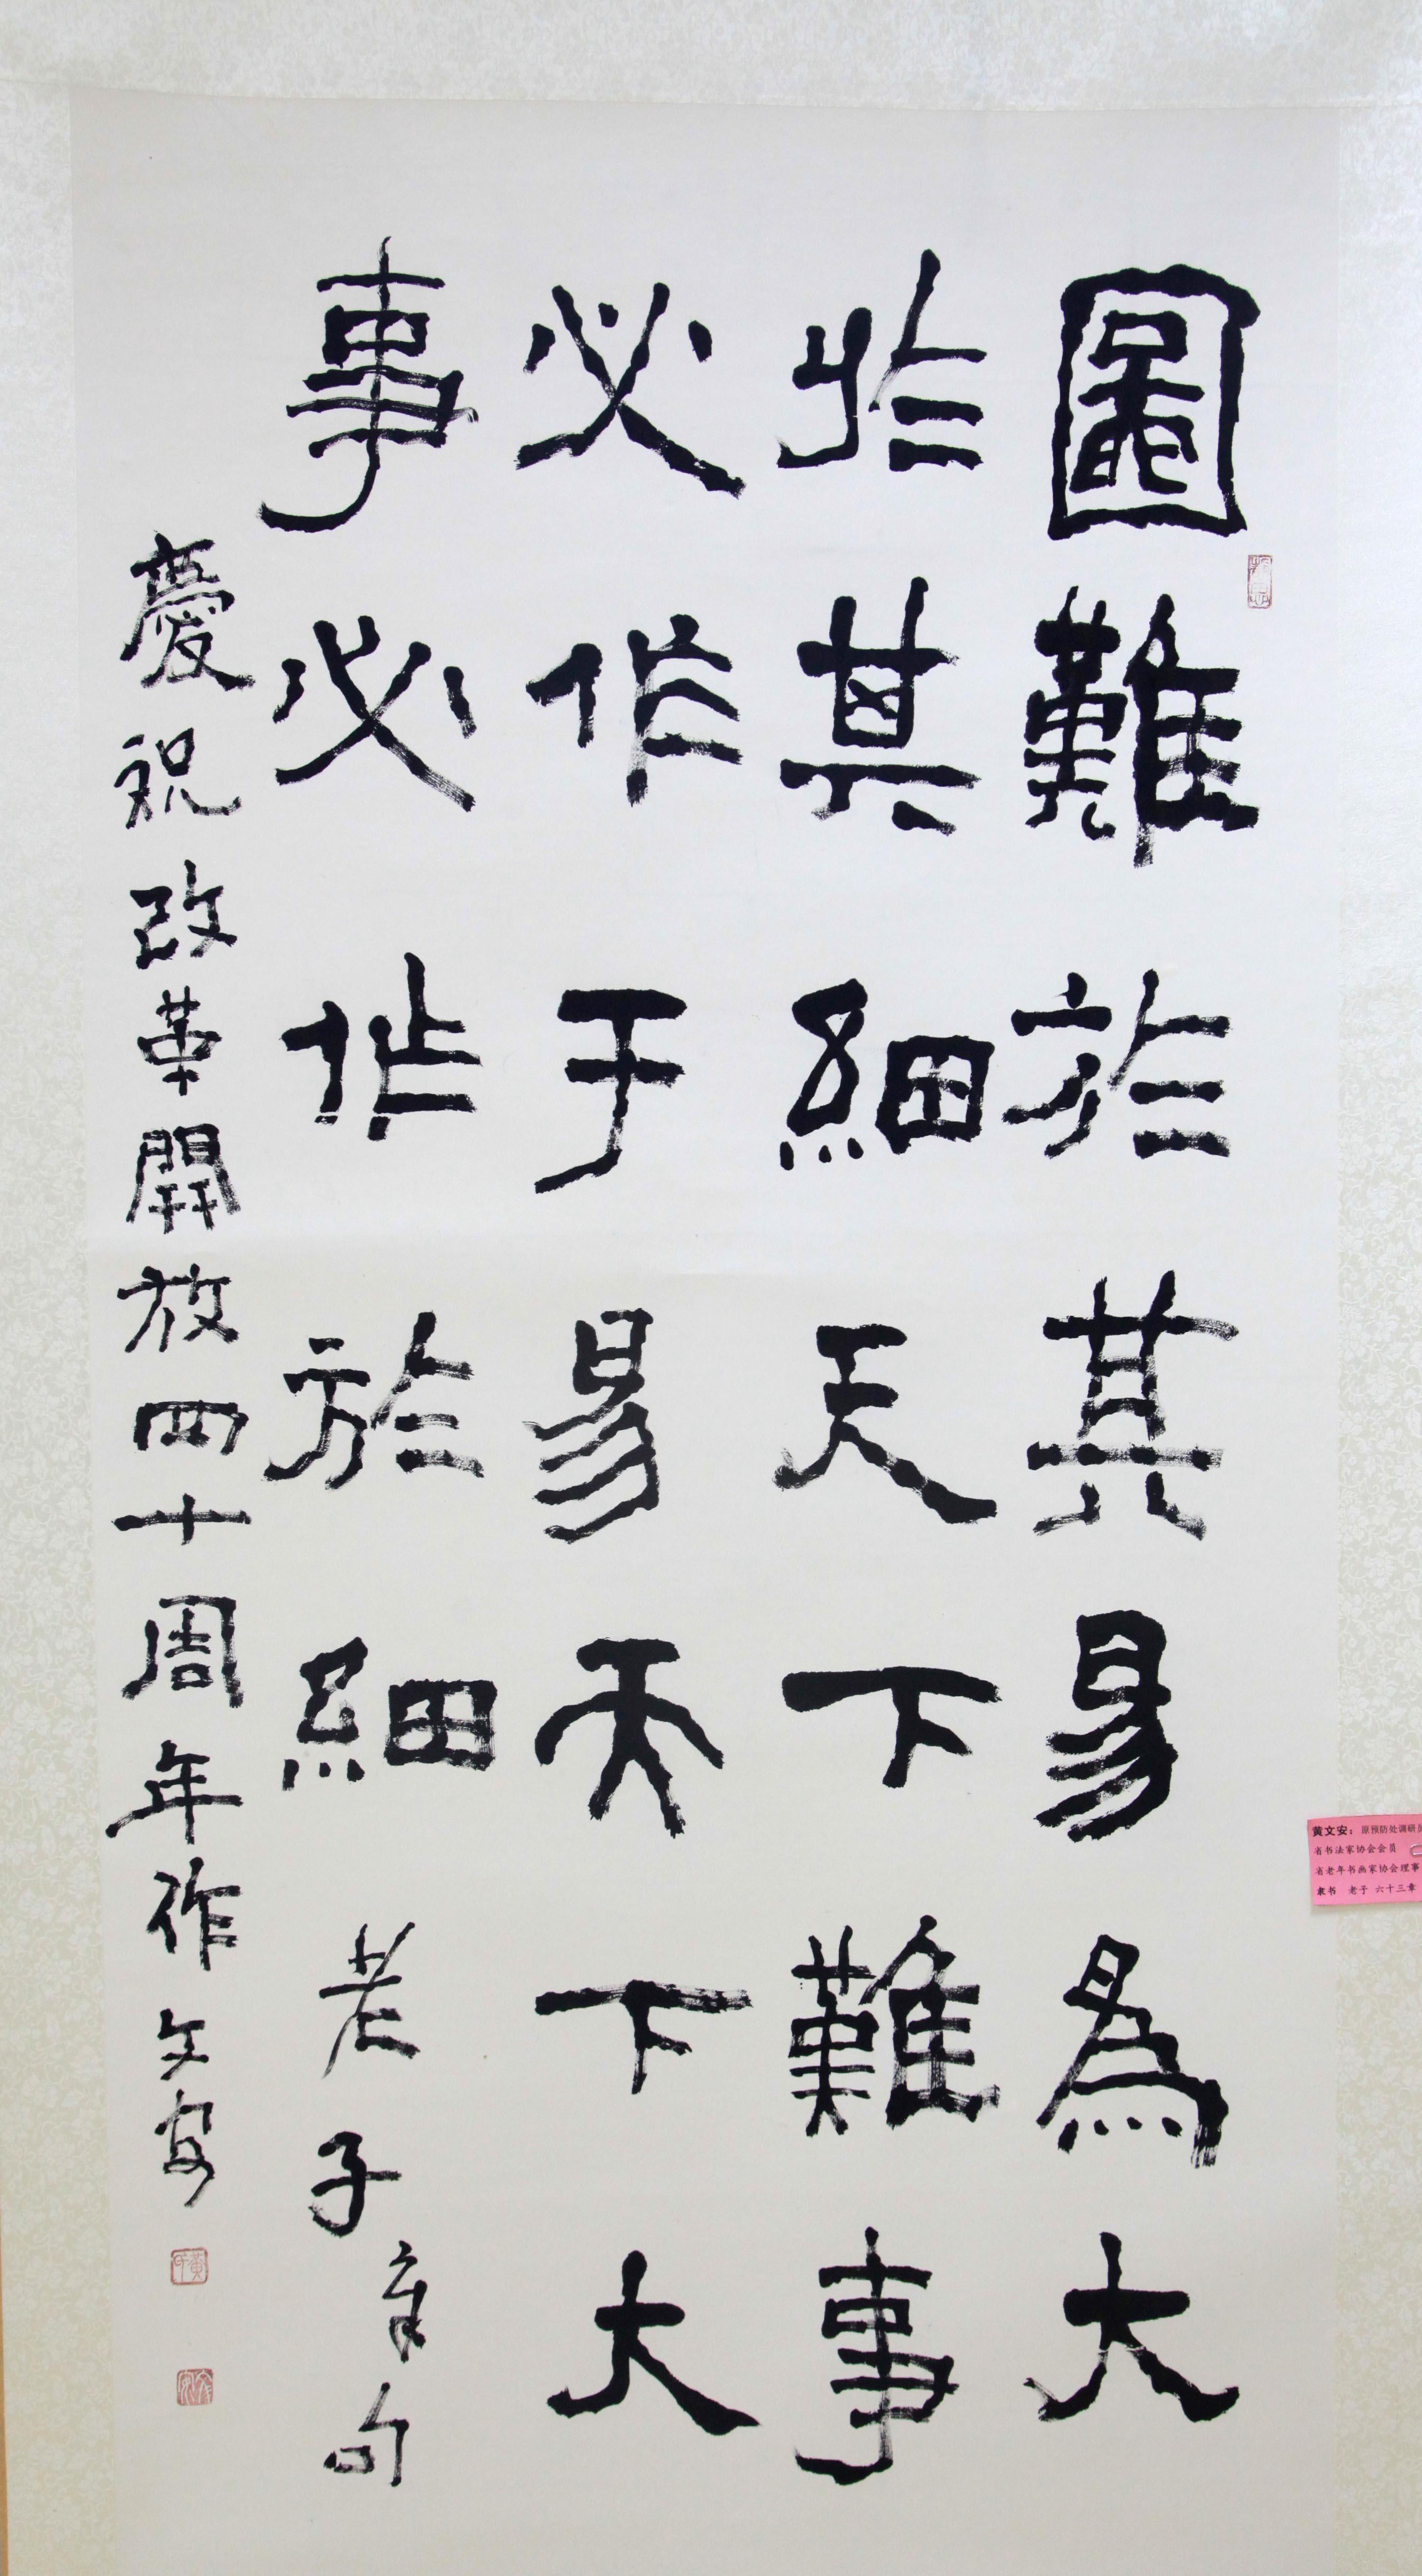 圖難於其易為大
於其細天下難事
必作于易天下大
事必作於細老子章句
慶祝改革開放四十周年作文安
黄文安：原预防处调研员
省书法家协会会员
省老年书画家协会理事
隶书 老子 六十三章